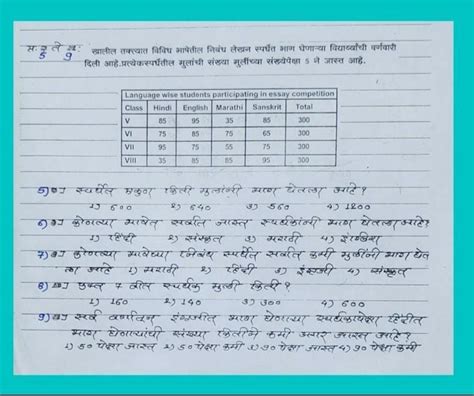 स. २ ते ब:
5 9
खालील तक्त्यात विविध भाषेतील निबंध लेखन स्पर्धेत भाग घेणाऱ्या विद्यार्थ्यांची वर्गवारी
दिली आहे.प्रत्येकस्पर्धेतील मुलांची संख्या मुलींच्या संख्येपेक्षा 5 ने जास्त आहे.
Language wise students participating in essay competition
Class Hindi English Marathi Sanskrit Total
V 85 95 35 85 300
VI 75 85 75 65 300
VII 95 75 55 75 300
VIII 35 85 85 95 300
5) स्पर्धेत एकूण किती मुलांनी भाग घेतला आहे?
1) 600 2) 640 3) 560 4) 1200
6) कोणत्या भाषेत सर्वात जास्त स्पर्धकांनी भाग घेतला आहे?
1) हिंदी 2) संस्कृत 3) मराठी 4) इंग्लिश
7) कोणत्या भाषेच्या निबंध स्पर्धेत सर्वात कमी मुलींनी भाग घेत
ला आहे 1) मराठी 2) हिंदी 3) इंग्रजी 4) संस्कृत
8) इयत्ता 7 वीत स्पर्धक मुली किती?
1) 160 2) 140 3) 300 4) 600
9) सर्व वर्गातून इंग्रजीत भाग घेणाऱ्या स्पर्धकापेक्षा हिंदीत
भाग घेणाऱ्यांची संख्या कितीने कमी अगर जास्त आहे?
1) 50 पेक्षा जास्त 2) 50 पेक्षा कमी 3) 30 पेक्षा जास्त 4) 30 पेक्षा कमी